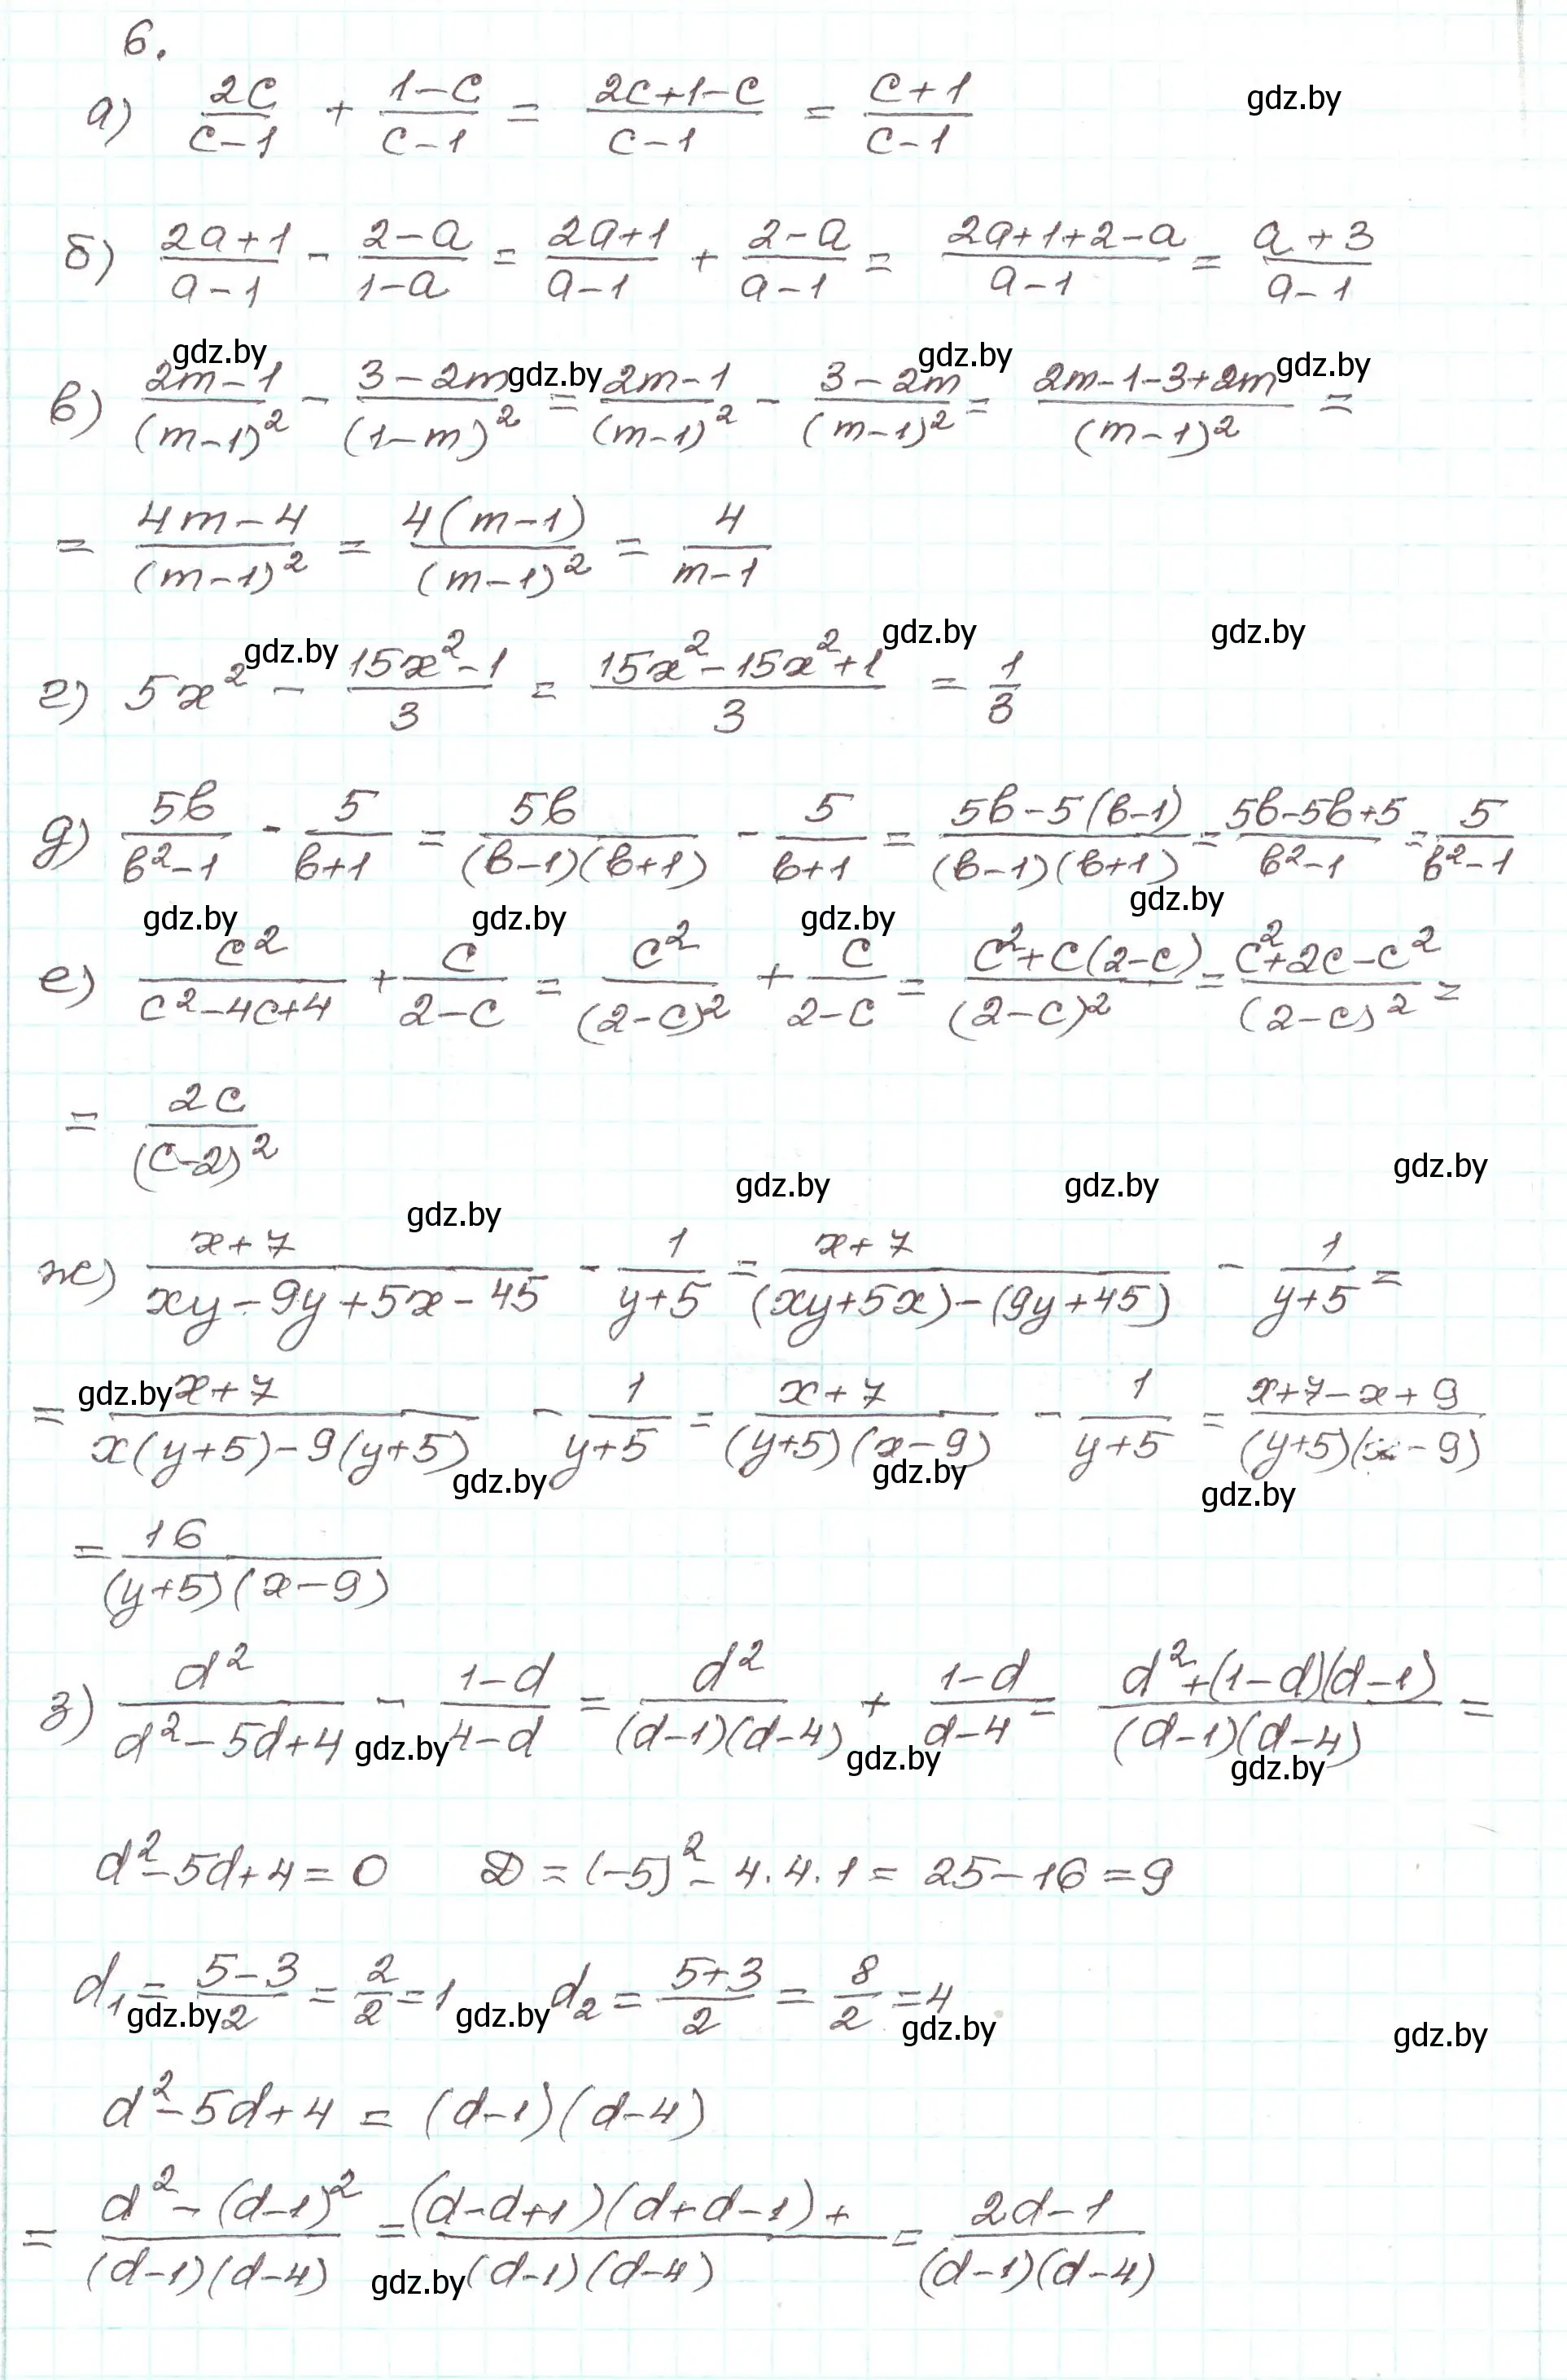 6.
а) 2c/(c-1) + (1-c)/(c-1) = (2c+1-c)/(c-1) = (c+1)/(c-1) gdz.by
б) (2a+1)/(a-1) - (2-a)/(1-a) = (2a+1)/(a-1) + (2-a)/(a-1) = (2a+1+2-a)/(a-1) = (a+3)/(a-1)
gdz.by gdz.by gdz.by gdz.by
в) (2m-1)/(m-1)² - (3-2m)/(1-m)² = (2m-1)/(m-1)² - (3-2m)/(m-1)² = (2m-1-3+2m)/(m-1)² =
= (4m-4)/(m-1)² = 4(m-1)/(m-1)² = 4/(m-1)
gdz.by gdz.by gdz.by
г) 5x² - (15x²-1)/3 = (15x²-15x²+1)/3 = 1/3
д) 5b/(b²-1) - 5/(b+1) = 5b/((b-1)(b+1)) - 5/(b+1) = (5b-5(b-1))/((b-1)(b+1)) = (5b-5b+5)/(b²-1) = 5/(b²-1)
gdz.by gdz.by gdz.by gdz.by
е) c²/(c²-4c+4) + c/(2-c) = c²/(2-c)² + c/(2-c) = (c²+c(2-c))/(2-c)² = (c²+2c-c²)/(2-c)² =
= 2c/(c-2)²
gdz.by gdz.by gdz.by gdz.by
ж) (x+7)/(xy-9y+5x-45) - 1/(y+5) = (x+7)/((xy+5x)-(9y+45)) - 1/(y+5) =
gdz.by
= (x+7)/(x(y+5)-9(y+5)) - 1/(y+5) = (x+7)/((y+5)(x-9)) - 1/(y+5) = (x+7-x+9)/((y+5)(x-9))
gdz.by gdz.by gdz.by
= 16/((y+5)(x-9))
з) d²/(d²-5d+4) - (1-d)/(4-d) = d²/((d-1)(d-4)) + (1-d)/(d-4) = (d²+(1-d)(d-1))/((d-1)(d-4)) =
gdz.by gdz.by gdz.by
d²-5d+4=0 D=(-5)²-4·4·1=25-16=9
d₁=(5-3)/2=2/2=1 d₂=(5+3)/2=8/2=4
gdz.by gdz.by gdz.by gdz.by
d²-5d+4=(d-1)(d-4)
= (d²-(d-1)²)/((d-1)(d-4)) = ((d-d+1)(d+d-1)+)/((d-1)(d-4)) = (2d-1)/((d-1)(d-4))
gdz.by